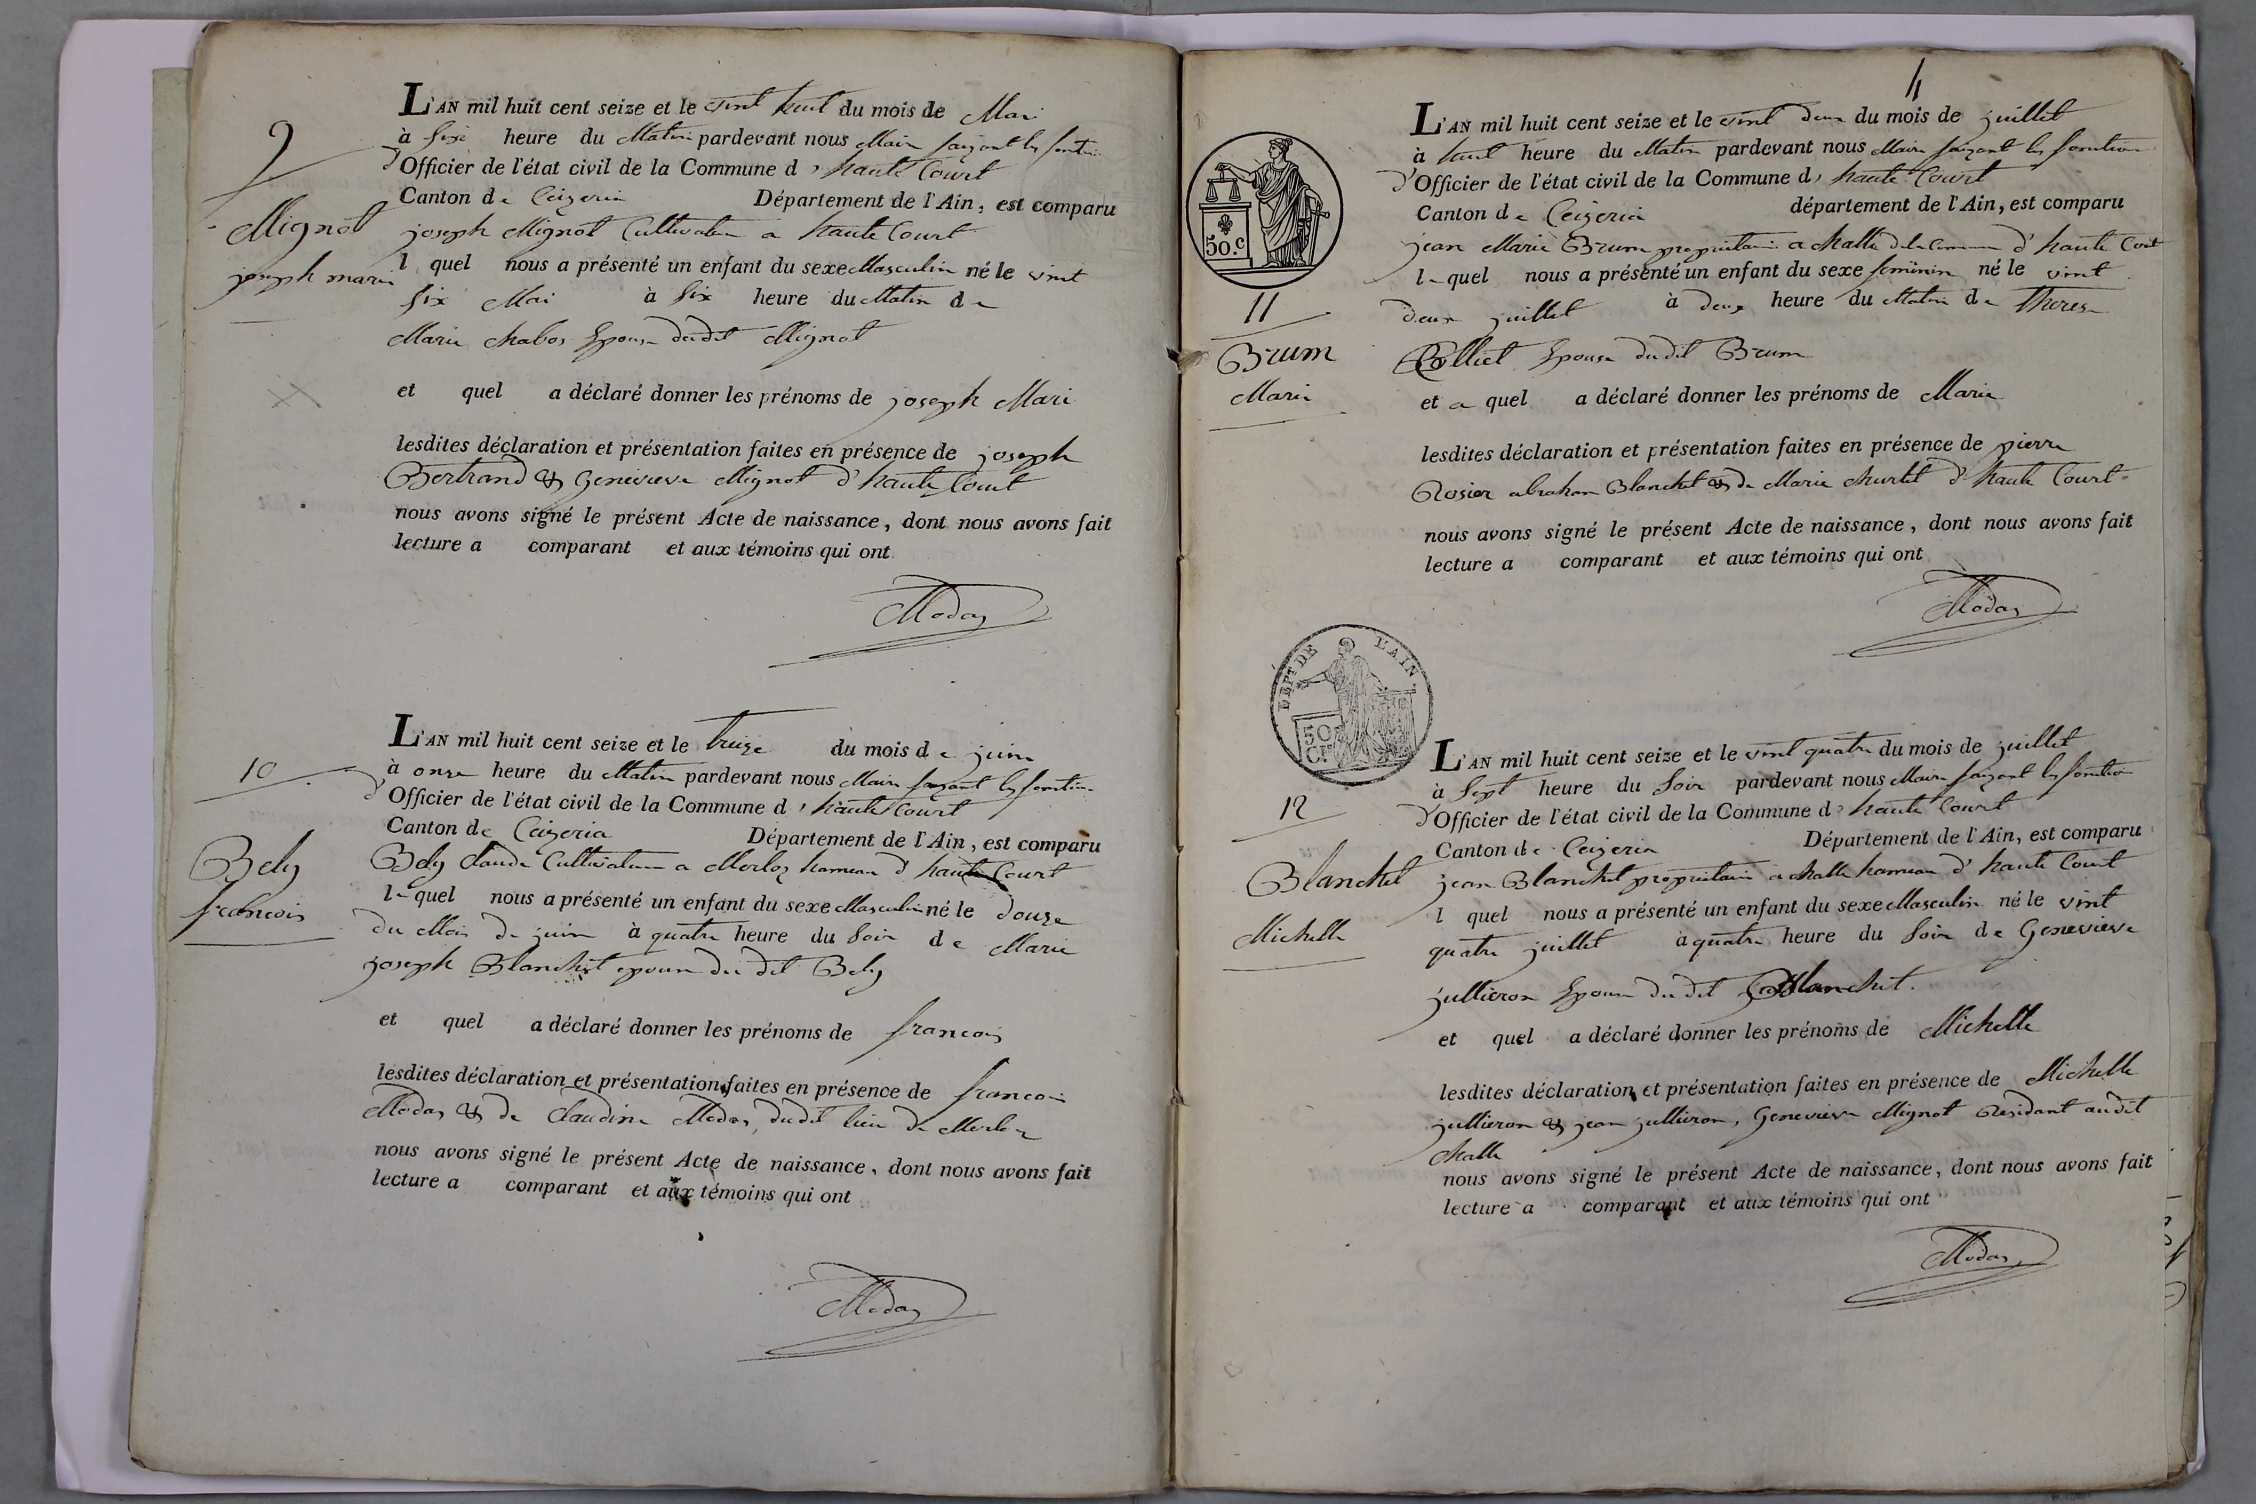 9
Mignot
joseph marie
L'AN mil huit cent seize et le vint huit du mois de Mai
à Sixe heure du Matin pardevant nous Maire faizant les fonction
d'Officier de l'état civil de la Commune d' haute Court
Canton de Ceizeria Département de l'Ain, est comparu
joseph Mignot Cultivateur a haute Court
l quel nous a présenté un enfant du sexe Masculin né le vint
Six Mai à Six heure du Matin de
Marie Chabos Epouse dudit Mignot
et quel a déclaré donner les prénoms de joseph Marie
lesdites déclaration et présentation faites en présence de joseph
Bertrand & Genevieve Mignot d'haute Court
nous avons signé le présent Acte de naissance, dont nous avons fait
lecture a comparant et aux témoins qui ont
Modas
10
Bely
francois
L'AN mil huit cent seize et le treize du mois de juin
à onze heure du Matin pardevant nous Maire faizant les fonction
d'Officier de l'état civil de la Commune d' haute Court
Canton de Ceizeria Département de l'Ain, est comparu
Bely Claude Cultivateur a Merloz hameau d' haute Court
le quel nous a présenté un enfant du sexe Masculin né le douze
du Mois de juin à quatre heure du Soir de Marie
joseph Blanchet epouse du dit Bely
et quel a déclaré donner les prénoms de francois
lesdites déclaration et présentation faites en présence de francois
Modas & de Claudine Modas, dudit lieu de Merloz
nous avons signé le présent Acte de naissance, dont nous avons fait
lecture a comparant et aux témoins qui ont
Modas
4
50.c
11
Brum
Marie
L'AN mil huit cent seize et le vint deux du mois de juillet
à huit heure du Matin pardevant nous Maire faizant les fonction
d'Officier de l'état civil de la Commune d' haute Court
Canton de Ceizeria département de l'Ain, est comparu
jean Marie Brum proprietaire a Challe de la Commune d' haute Court
le quel nous a présenté un enfant du sexe feminin né le vint
deux juillet à deux heure du Matin de Therese
Colliet Epouse dudit Brum
et a quel a déclaré donner les prénoms de Marie
lesdites déclaration et présentation faites en présence de pierre
Rosier abraham Blanchet & de Marie Churlet d'haute Court
nous avons signé le présent Acte de naissance, dont nous avons fait
lecture a comparant et aux témoins qui ont
Modas
DEPT DE L'AIN.
50 Cs
12
Blanchet
Michelle
L'AN mil huit cent seize et le vint quatre du mois de juillet
à Sept heure du Soir pardevant nous Maire faizant les fonction
d'Officier de l'état civil de la Commune d' haute Court
Canton de Ceizeria Département de l'Ain, est comparu
jean Blanchet proprietaire a Challe hameau d' haute Court
l quel nous a présenté un enfant du sexe Masculin né le vint
quatre juillet à quatre heure du Soir de Genevieve
jullieron Epouse du dit Blanchet.
et quel a déclaré donner les prénoms de Michelle
lesdites déclaration et présentation faites en présence de Michelle
jullieron & jean jullieron, Genevieve Mignot Residant audit
Challe
nous avons signé le présent Acte de naissance, dont nous avons fait
lecture a comparant et aux témoins qui ont
Modas